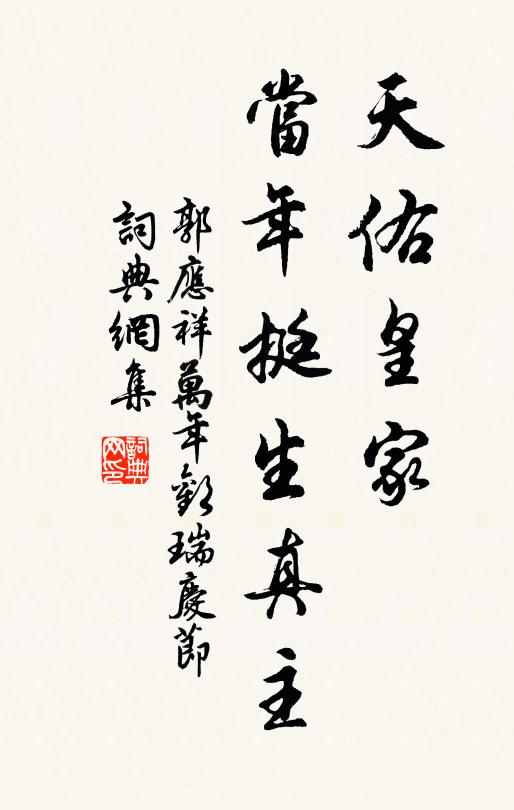 天佑皇家
當年挺生真主
郭應祥萬年歡瑞慶節
詞典網集
詞典網印